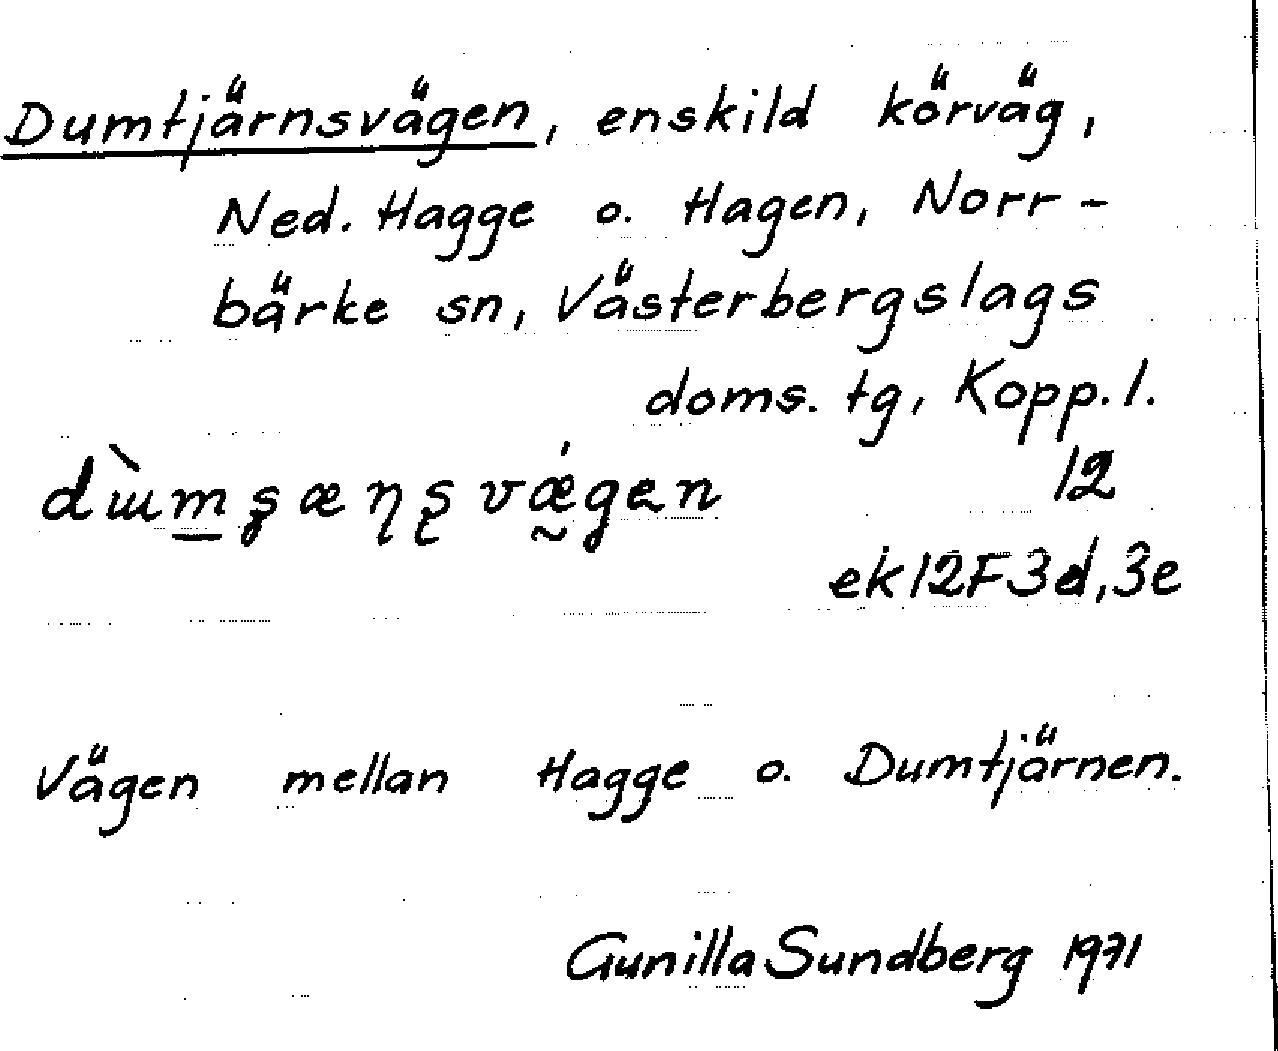 Dumtjärnsvägen, enskild körväg,
Ned. Hagge o. Hagen, Norr-
bärke sn, Västerbergslags
doms. tg, Kopp. l.
12
ek12F3d,3e
Vägen mellan Hagge o. Dumtjärnen.
Gunilla Sundberg 1971